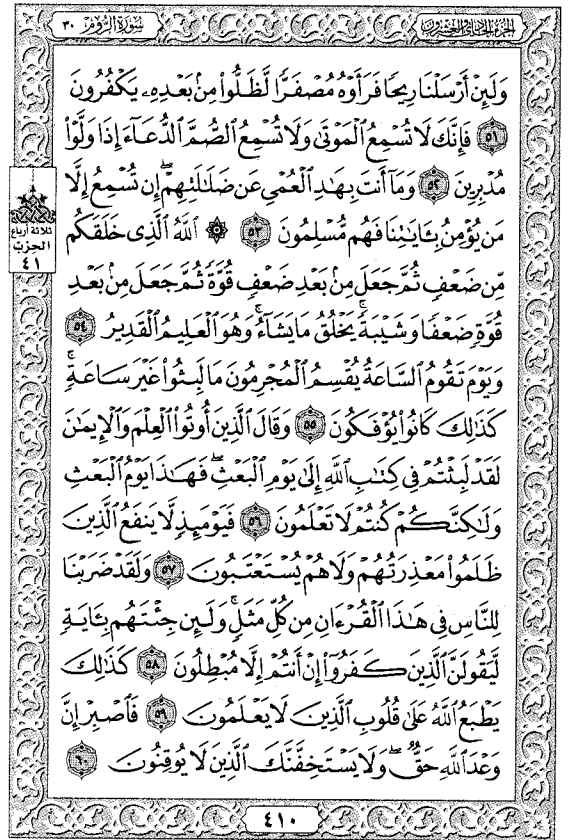 سورة الروم ٣٠
الجزء الحادي والعشرون
وَلَئِنْ أَرْسَلْنَا رِيحًا فَرَأَوْهُ مُصْفَرًّا لَّظَلُّوا۟ مِنۢ بَعْدِهِۦ يَكْفُرُونَ
٥١ فَإِنَّكَ لَا تُسْمِعُ ٱلْمَوْتَىٰ وَلَا تُسْمِعُ ٱلصُّمَّ ٱلدُّعَآءَ إِذَا وَلَّوْا۟
مُدْبِرِينَ ٥٢ وَمَآ أَنتَ بِهَـٰدِ ٱلْعُمْىِ عَن ضَلَـٰلَتِهِمْ ۖ إِن تُسْمِعُ إِلَّا
مَن يُؤْمِنُ بِـَٔايَـٰتِنَا فَهُم مُّسْلِمُونَ ٥٣ ۞ ٱللَّهُ ٱلَّذِى خَلَقَكُم
ثلاثة أرباع
الحزب
٤١
مِّن ضَعْفٍ ثُمَّ جَعَلَ مِنۢ بَعْدِ ضَعْفٍ قُوَّةً ثُمَّ جَعَلَ مِنۢ بَعْدِ
قُوَّةٍ ضَعْفًا وَشَيْبَةً ۚ يَخْلُقُ مَا يَشَآءُ ۖ وَهُوَ ٱلْعَلِيمُ ٱلْقَدِيرُ ٥٤
وَيَوْمَ تَقُومُ ٱلسَّاعَةُ يُقْسِمُ ٱلْمُجْرِمُونَ مَا لَبِثُوا۟ غَيْرَ سَاعَةٍ ۚ
كَذَٰلِكَ كَانُوا۟ يُؤْفَكُونَ ٥٥ وَقَالَ ٱلَّذِينَ أُوتُوا۟ ٱلْعِلْمَ وَٱلْإِيمَـٰنَ
لَقَدْ لَبِثْتُمْ فِى كِتَـٰبِ ٱللَّهِ إِلَىٰ يَوْمِ ٱلْبَعْثِ ۖ فَهَـٰذَا يَوْمُ ٱلْبَعْثِ
وَلَـٰكِنَّكُمْ كُنتُمْ لَا تَعْلَمُونَ ٥٦ فَيَوْمَئِذٍ لَّا يَنفَعُ ٱلَّذِينَ
ظَلَمُوا۟ مَعْذِرَتُهُمْ وَلَا هُمْ يُسْتَعْتَبُونَ ٥٧ وَلَقَدْ ضَرَبْنَا
لِلنَّاسِ فِى هَـٰذَا ٱلْقُرْءَانِ مِن كُلِّ مَثَلٍ ۚ وَلَئِن جِئْتَهُم بِـَٔايَةٍ
لَّيَقُولَنَّ ٱلَّذِينَ كَفَرُوٓا۟ إِنْ أَنتُمْ إِلَّا مُبْطِلُونَ ٥٨ كَذَٰلِكَ
يَطْبَعُ ٱللَّهُ عَلَىٰ قُلُوبِ ٱلَّذِينَ لَا يَعْلَمُونَ ٥٩ فَٱصْبِرْ إِنَّ
وَعْدَ ٱللَّهِ حَقٌّ ۖ وَلَا يَسْتَخِفَّنَّكَ ٱلَّذِينَ لَا يُوقِنُونَ ٦٠
٤١٠